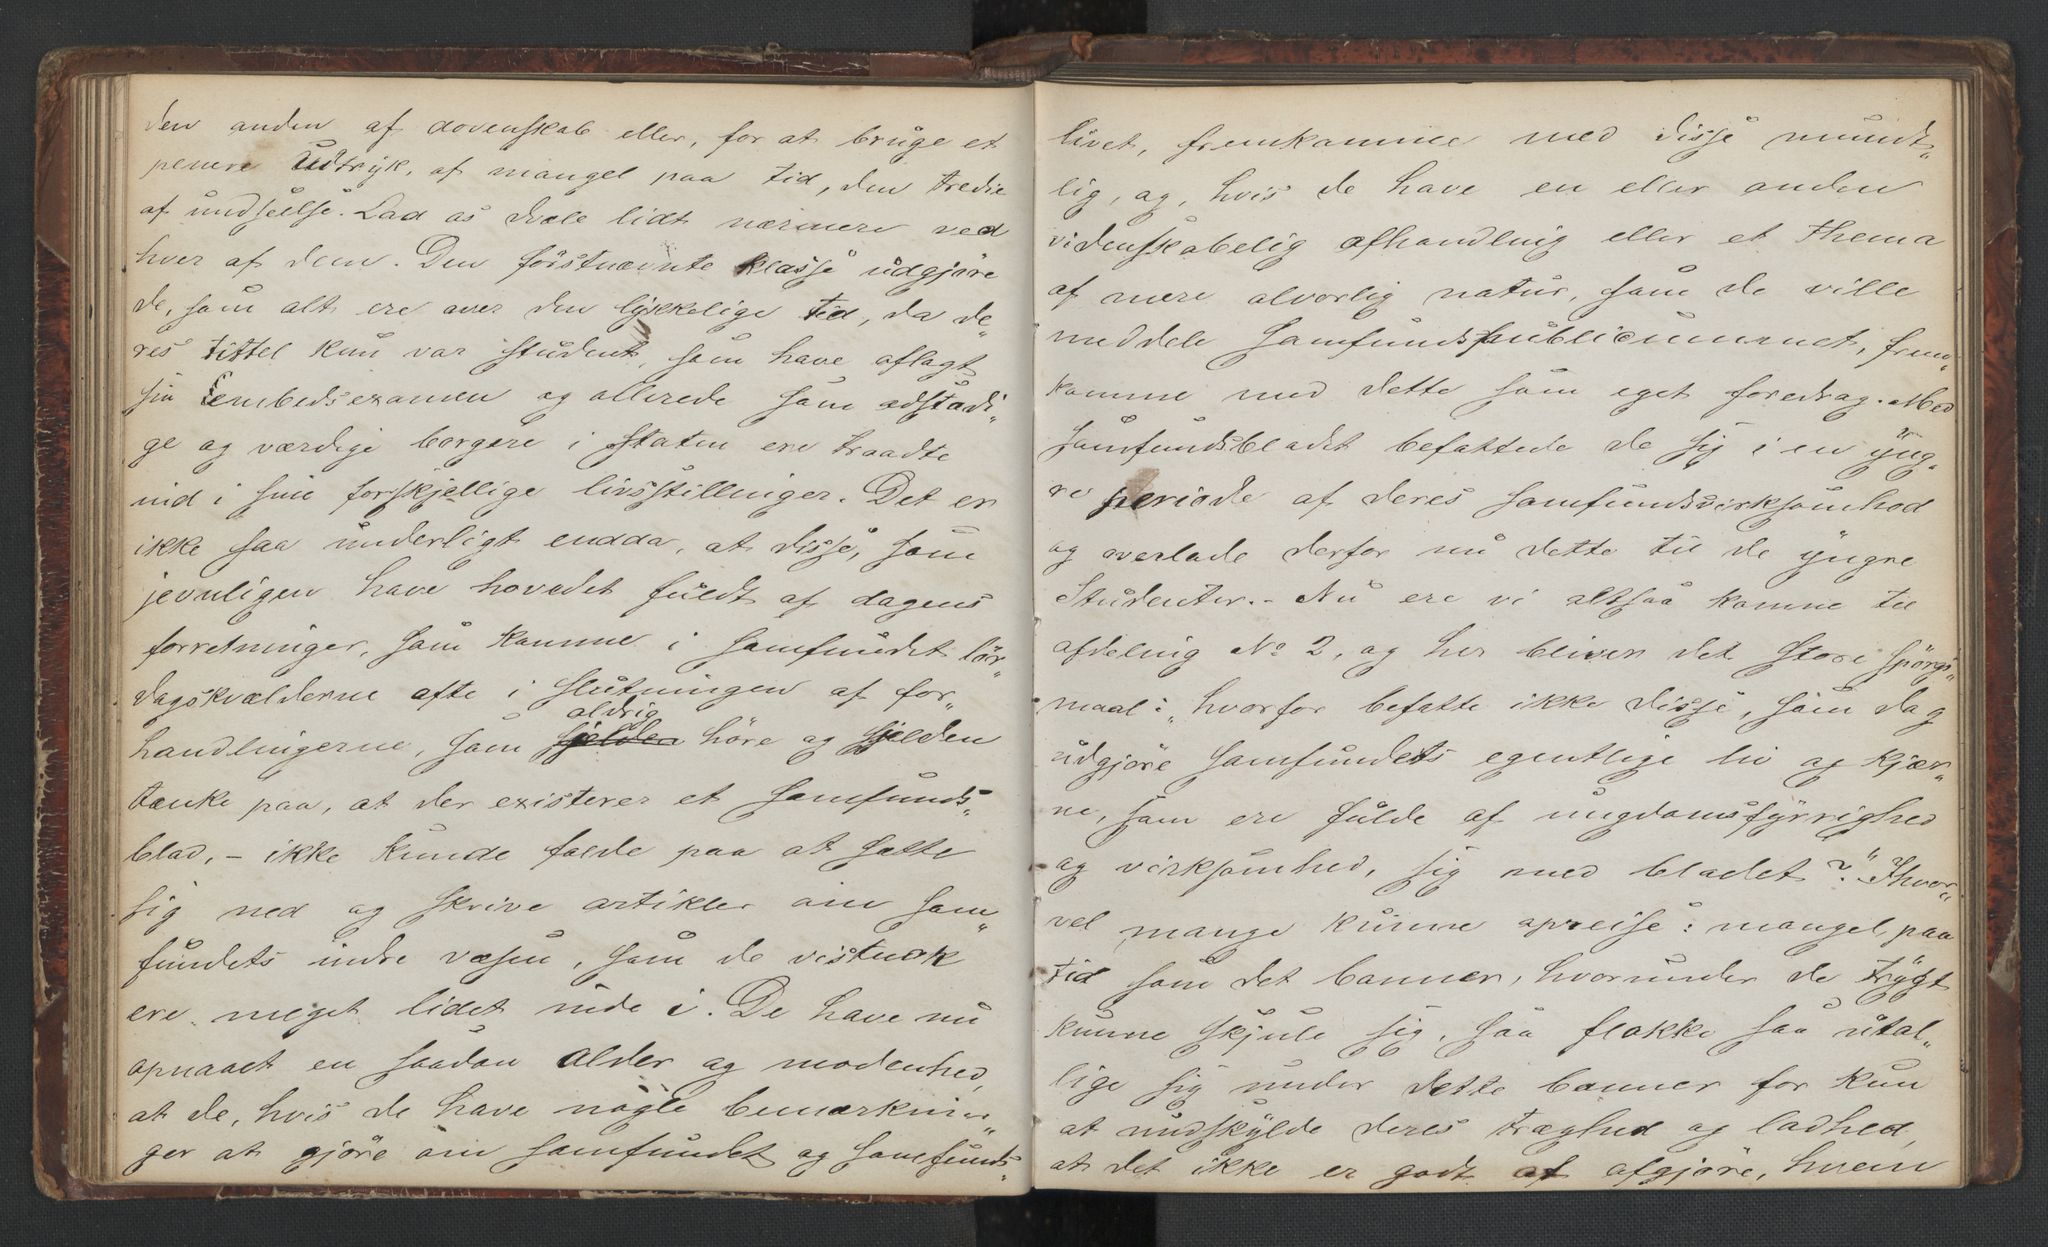 den anden af dovenskab eller, for at bruge et
penere Udtryk, af mangel paa tid, den tredie
af undseelse. Lad os dvæle lidt nærmere ved
hver af dem. Den förstnævnte klasse udgjöre
de, som alt ere over den lykkelige tid, da de„
res tittel kun var student, som have aflagt
sin Embedsexamen og allerede som adstadi„
ge og værdige borgere i staten ere traadte
ind i sine forskjellige livsstillinger. Det er
ikke saa underligt endda, at disse, som
jevnligen have hovedet fuldt af dagens
forretninger, som komme i samfundet lör„
dagskvælderne ofte i slutningen af for„
handlingerne, som sjelden aldrig höre og sjelden
tænke paa, at der existerer et samfunds„
blad, – ikke kunde falde paa at sætte
sig ned og skrive artikler om sam„
fundets indre væsen, som de vistnok
ere meget lidet inde i. De have nu
opnaaet en saadan alder og modenhed,
at de, hvis de have nogle bemærknin„
ger at gjöre om samfundet og samfunds„
livet, fremkomme med disse mundt„
lig, og, hvis de have en eller anden
videnskabelig afhandling eller et Thema
af mere alvorlig natur, som de ville
meddele samfundspublicummet, frem„
komme med dette som eget foredrag. Med
samfundsbladet befattede de sig i en yng„
re periode af deres samfundsvirksomhed
og overlade derfor nu dette til de yngre
Studenter. – Nu ere vi altsaa komne til
afdeling No 2, og her bliver det store spörgs„
maal: „hvorfor befatte ikke disse, som dog
udgjöre samfundets egentlige liv og kjær„
ne, som ere fulde af ungdomsfyrrighed
og virksomhed, sig med bladet?" Ihvor„
vel mange kunne opreise: mangel paa
tid som det banner, hvorunder de trygt
kunne skjule sig, saa flokke saa utal„
lige sig under dette banner for kun
at undskylde deres træghed og ladhed,
at det ikke er godt at afgjöre, hvem